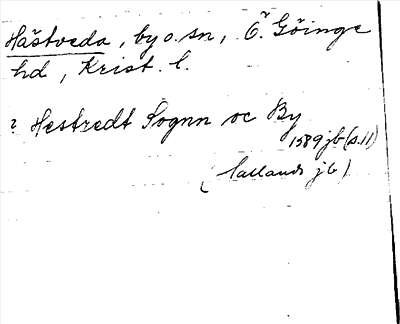 Hästveda, by o. sn, Ö. Göinge
hd, Krist. l.
? Hestredt Sognn oc By
1589 jb (s. 11)
(Lallands jb)